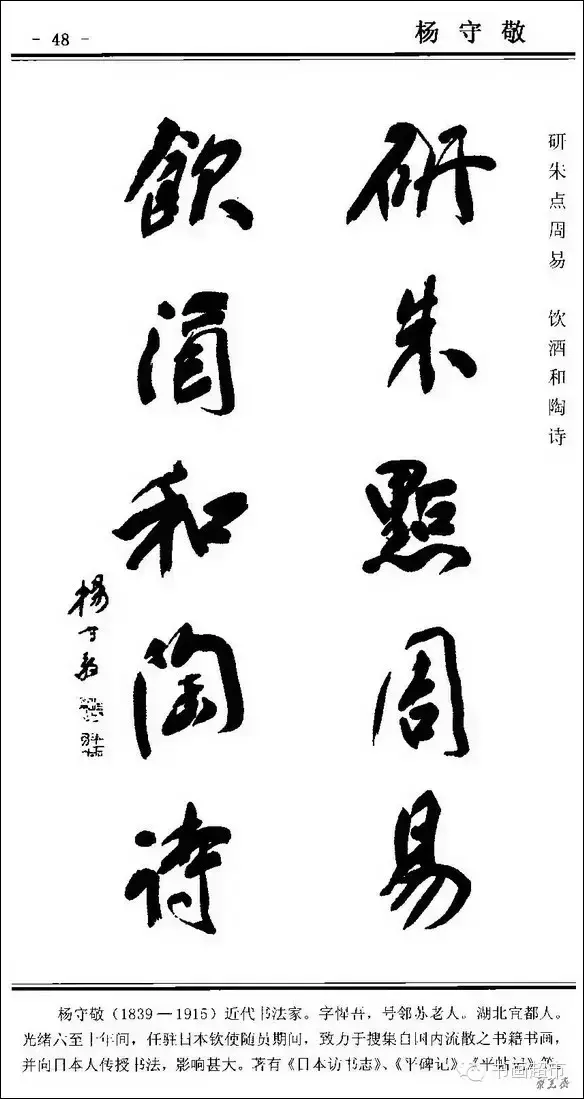 - 48 -
杨守敬
研朱点周易 饮酒和陶诗
研朱點周易
飲酒和陶诗
楊守敬
杨守敬（1839－1915）近代书法家。字惺吾，号邻苏老人。湖北宜都人。
光绪六至十年间，任驻日本钦使随员期间，致力于搜集自国内流散之书籍书画，
并向日本人传授书法，影响甚大。著有《日本访书志》、《平碑记》、《平帖记》等。
书画超市